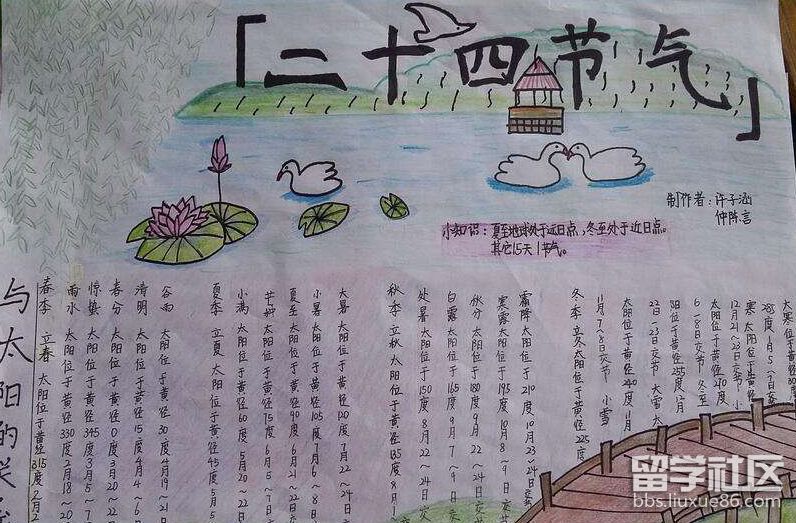 「二十四节气」
制作者：许子涵
仲陈言
小知识：夏至地球处于近日点，冬至处于近日点。
其它15天1节气。
与太阳的关
春季 立春 太阳位于黄径315度 2月
雨水 太阳位于黄径330度 2月18～20
惊蛰 太阳位于黄径345度 3月5～7
春分 太阳位于黄径0度 3月20～22
清明 太阳位于黄径15度 4月4～6
谷雨 太阳位于黄径30度 4月19～21
夏季 立夏 太阳位于黄径45度 5月5
小满 太阳位于黄径60度 5月20～22日
芒种 太阳位于黄径75度 6月5～7日
夏至 太阳位于黄径90度 6月21～22日
小暑 太阳位于黄径105度 7月6～8日
大暑 太阳位于黄径120度 7月22～24日
秋季 立秋 太阳位于黄径135度 8月
处暑 太阳位于150度 8月22～24日交
白露 太阳位于165度 9月7～9日交
秋分 太阳位于180度 9月22～24日
寒露 太阳位于195度 10月8～9日交
霜降 太阳位于210度 10月23～24日交
冬季 立冬 太阳位于黄径225度
11月7～8日交节 小雪
太阳位于黄径240度 11月
22～23日交节 大雪 太
阳位于黄径255度 12月
6～8日交节 冬至
太阳位于黄径270度
12月21～23日交节 小
寒 太阳位于黄径
285度 1月5～7日交
大寒 位于黄径300
留学社区
bbs.liuxue86.com